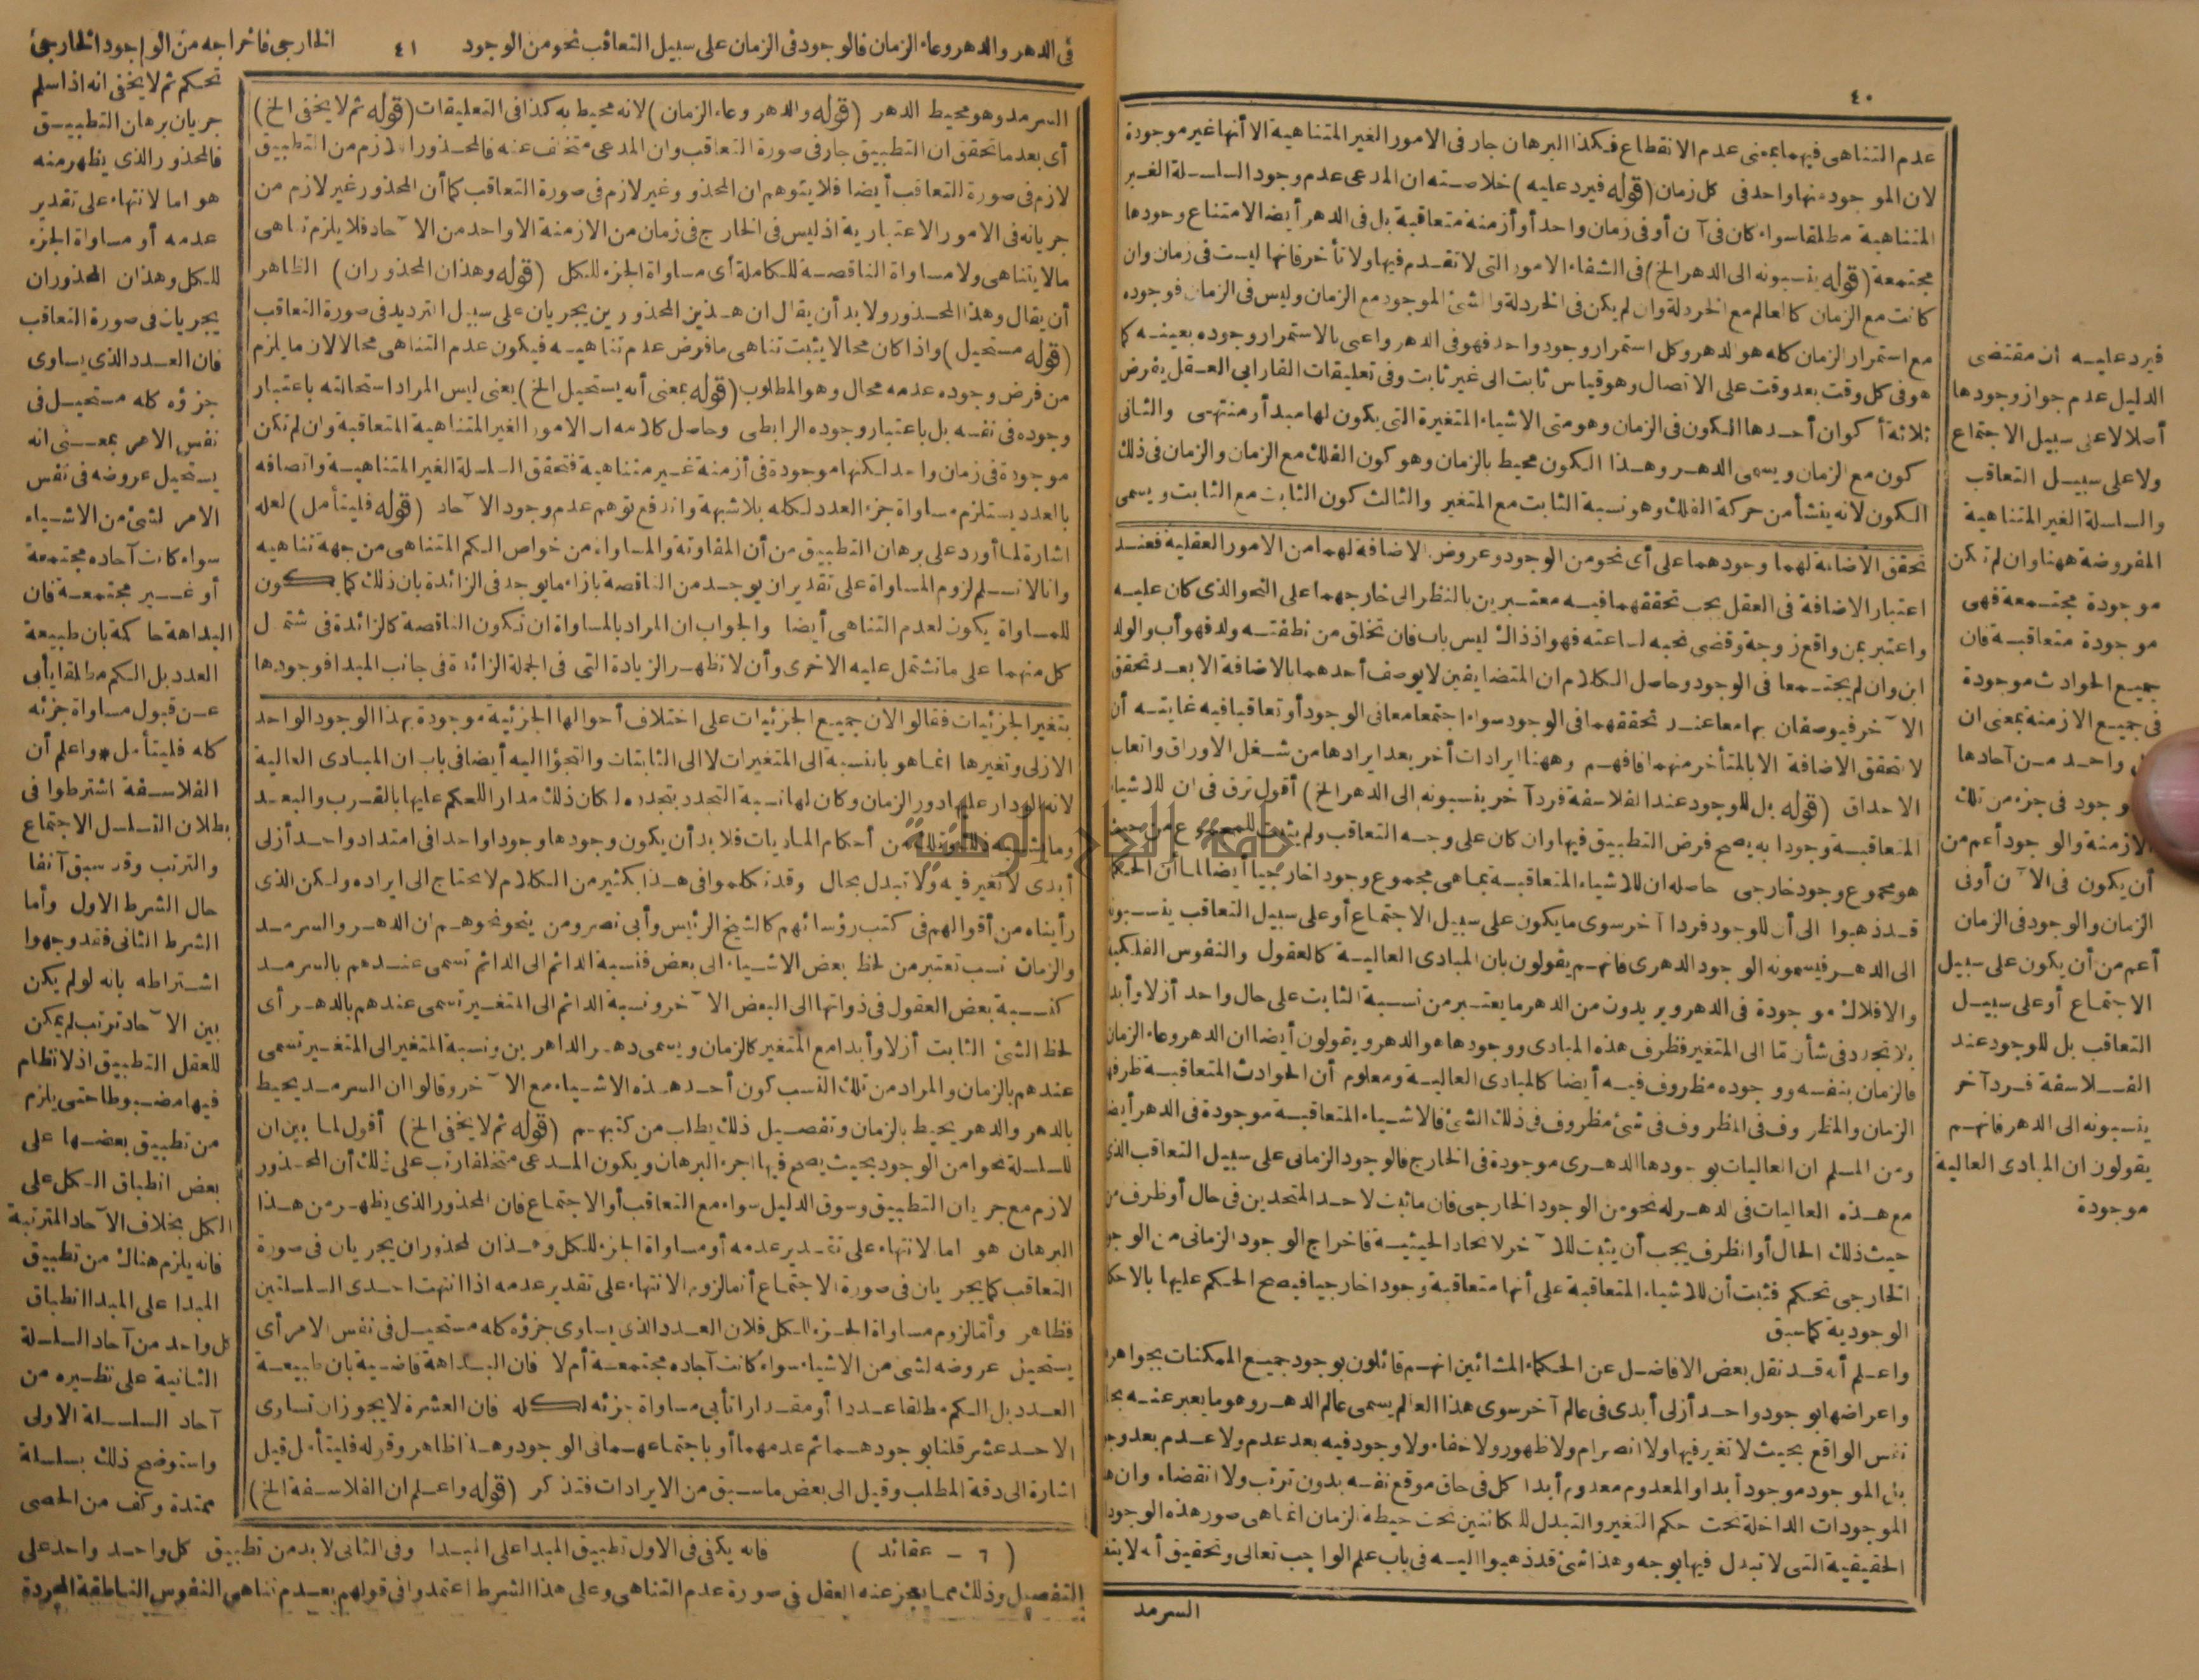 ٤٠
عدم التناهى فيهما بمعنى عدم الانقطاع فكذا البرهان جار فى الامور الغير المتناهية الا أنها غير موجودة
لان الموجود منها واحد فى كل زمان (قوله فيرد عليه) خلاصته ان المدعى عدم وجود السلسلة الغير
المتناهية مطلقا سواء كان فى آن أو فى زمان واحد أو أزمنة متعاقبة بل فى الدهر أيضا لامتناع وجودها
مجتمعة (قوله ينسبونه الى الدهر الخ) فى الشفاء الامور التى لا تقدم فيها ولا تأخر فانها ليست فى زمان وان
كانت مع الزمان كالعالم مع الخردلة وان لم يكن فى الخردلة والشئ الموجود مع الزمان وليس فى الزمان فوجوده
مع استمرار الزمان كله هو الدهر وكل استمرار وجود واحد فهو فى الدهر واعنى بالاستمرار وجوده بعينه كما
هو فى كل وقت بعد وقت على الاتصال وهو قياس ثابت الى غير ثابت وفى تعليقات الفارابى العقل يفرض
ثلاثة أكوان أحدها الكون فى الزمان وهو متى الاشياء المتغيرة التى يكون لها مبدأ ومنتهى والثانى
كون مع الزمان ويسمى الدهر وهذا الكون محيط بالزمان وهو كون الفلك مع الزمان والزمان فى ذلك
الكون لانه ينشأ من حركة الفلك وهو نسبة الثابت مع المتغير والثالث كون الثابت مع الثابت ويسمى
تحقق الاضافة لهما وجودهما على أى نحو من الوجود وعروض الاضافة لهما من الامور العقلية فعند
اعتبار الاضافة فى العقل يجب تحققهما فيه معتبرين بالنظر الى خارجهما على النحو الذى كان عليه
واعتبر بمن واقع زوجة وقضى نحبه لساعته فهو اذ ذاك ليس باب فان تخلق من نطفته ولد فهو أب والولد
ابن وان لم يجتمعا فى الوجود وحاصل الكلام ان المتضايفين لا يوصف أحدهما بالاضافة الا بعد تحقق
الآخر فيوصفان بها معا عند تحققهما فى الوجود سواء اجتمعا معا فى الوجود أو تعاقبا فيه غايته أن
لا تحقق الاضافة الا بالمتأخر منهما فافهم وههنا ايرادات أخر بعد ايرادها من شغل الاوراق واتعاب
الاحداق (قوله بل للوجود عند الفلاسفة فرد آخر ينسبونه الى الدهر الخ) أقول ترق فى ان للاشياء
المتعاقبة وجودا به يصح فرض التطبيق فيها وان كان على وجه التعاقب ولم يثبت للمجموع من حيث
هو مجموع وجود خارجى حاصله ان للاشياء المتعاقبة بما هى مجموع وجودا خارجيا أيضا لما أن الحكماء
قد ذهبوا الى أن للوجود فردا آخر سوى ما يكون على سبيل الاجتماع أو على سبيل التعاقب ينسبونه
الى الدهر فيسمونه الوجود الدهرى فانهم يقولون بان المبادى العالية كالعقول والنفوس الفلكية
والافلاك موجودة فى الدهر ويريدون من الدهر ما يعتبر من نسبة الثابت على حال واحد أزلا وأبدا
بلا تجدد فى شأن ما الى المتغير فظرف هذه المبادى ووجودها هو الدهر ويقولون أيضا ان الدهر وعاء الزمان
فالزمان بنفسه ووجوده مظروف فيه أيضا كالمبادى العالية ومعلوم أن الحوادث المتعاقبة ظرفها
الزمان والمظروف فى المظروف فى شئ مظروف فى ذلك الشئ فالاشياء المتعاقبة موجودة فى الدهر أيضا
ومن المسلم ان العاليات بوجودها الدهرى موجودة فى الخارج فالوجود الزمانى على سبيل التعاقب الذى
مع هذه العاليات فى الدهر له نحو من الوجود الخارجى فان ما ثبت لاحد المتحدين فى حال أو ظرف من
حيث ذلك الحال أو الظرف يجب أن يثبت للآخر لاتحاد الحيثية فاخراج الوجود الزمانى من الوجود
الخارجى تحكم فثبت أن للاشياء المتعاقبة على أنها متعاقبة وجودا خارجيا فيصح الحكم عليها بالاحكام
الوجودية كما سبق
واعلم أنه قد نقل بعض الافاضل عن الحكماء المشائين انهم قائلون بوجود جميع الممكنات بجواهرها
واعراضها بوجود واحد أزلى أبدى فى عالم آخر سوى هذا العالم يسمى عالم الدهر وهو ما يعبر عنه
نفس الواقع بحيث لا تغير فيها ولا انصرام ولا ظهور ولا خفاء ولا وجود فيه بعد عدم ولا عدم بعد وجود
بل الموجود موجود أبدا والمعدوم معدوم أبدا كل فى حاق موقع نفسه بدون ترتب ولا انقضاء وان
الموجودات الداخلة تحت حكم التغير والتبدل للكائنين تحت حيطة الزمان انما هى صور هذه الوجودات
الحقيقية التى لا تبدل فيها بوجه وهذا شئ قد ذهبوا اليه فى باب علم الواجب تعالى وتحقيق أنه لا يتغير
السرمد
فيرد عليه ان مقتضى
الدليل عدم جواز وجودها
أصلا لا على سبيل الاجتماع
ولا على سبيل التعاقب
والسلسلة الغير المتناهية
المفروضة ههنا وان لم تكن
موجودة مجتمعة فهى
موجودة متعاقبة فان
جميع الحوادث موجودة
فى جميع الازمنة بمعنى ان
واحد من آحادها
موجود فى جزء من تلك
الازمنة والوجود أعم من
أن يكون فى الآن أو فى
الزمان والوجود فى الزمان
أعم من أن يكون على سبيل
الاجتماع أو على سبيل
التعاقب بل للوجود عند
الفلاسفة فرد آخر
ينسبونه الى الدهر فانهم
يقولون ان المبادى العالية
موجودة
فى الدهر والدهر وعاء الزمان فالوجود فى الزمان على سبيل التعاقب نحو من الوجود ٤١ الخارجى فاخراجه من الوجود الخارجى
السرمد وهو محيط الدهر (قوله والدهر وعاء الزمان) لانه محيط به كذا فى التعليقات (قوله ثم لا يخفى الخ)
أى بعد ما تحقق ان التطبيق جار فى صورة التعاقب وان المدعى متخلف عنه فالمحذور اللازم من التطبيق
لازم فى صورة التعاقب أيضا فلا يتوهم ان المحذور غير لازم فى صورة التعاقب كما أن المحذور غير لازم من
جريانه فى الامور الاعتبارية اذ ليس فى الخارج فى زمان من الازمنة الا واحد من الآحاد فلا يلزم تناهى
ما لا يتناهى ولا مساواة الناقصة للكاملة أى مساواة الجزء للكل (قوله وهذان المحذوران) الظاهر
أن يقال وهذا المحذور ولا بد أن يقال ان هذين المحذورين يجريان على سبيل الترديد فى صورة التعاقب
(قوله مستحيل) واذا كان محالا يثبت تناهى ما فرض عدم تناهيه فيكون عدم التناهى محالا لان ما يلزم
من فرض وجوده عدمه محال وهو المطلوب (قوله بمعنى أنه يستحيل الخ) يعنى ليس المراد استحالته باعتبار
وجوده فى نفسه بل باعتبار وجوده الرابطى وحاصل كلامه ان الامور الغير المتناهية المتعاقبة وان لم تكن
موجودة فى زمان واحد لكنها موجودة فى أزمنة غير متناهية فتحقق السلسلة الغير المتناهية واتصافه
بالعدد يستلزم مساواة جزء العدد لكله بلا شبهة واندفع توهم عدم وجود الآحاد (قوله فليتأمل) لعله
اشارة لما أورد على برهان التطبيق من أن المفاوتة والمساواة من خواص الكم المتناهى من جهة تناهيه
وانا لا نسلم لزوم المساواة على تقدير ان يوجد من الناقصة بازاء ما يوجد فى الزائدة بان ذلك كما يكون
للمساواة يكون لعدم التناهى أيضا والجواب ان المراد بالمساواة ان تكون الناقصة كالزائدة فى شتمل
كل منهما على ما تشتمل عليه الاخرى وأن لا تظهر الزيادة التى فى الجملة الزائدة فى جانب المبدا فوجودها
بتغير الجزئيات فقالوا لان جميع الجزئيات على اختلاف أحوالها الجزئية موجودة بهذا الوجود الواحد
الازلى وتغيرها انما هو بالنسبة الى المتغيرات لا الى الثابتات والتجؤا اليه أيضا فى باب ان المبادى العالية
لانه لو دار عليها دور الزمان وكان لها نسبة التجدد بتجدده لكان ذلك مدارا للحكم عليها بالقرب والبعد
وما أشبه ذلك وذلك من أحكام الماديات فلا بد أن يكون وجودها وجودا واحدا فى امتداد واحد أزلى
أبدى لا تغير فيه ولا تبدل بحال وقد تكلموا فى هذا بكثير من الكلام لا يحتاج الى ايراده ولكن الذى
رأيناه من أقوالهم فى كتب رؤسائهم كالشيخ الرئيس وأبى نصر ومن ينحو نحوهم ان الدهر والسرمد
والزمان نسب تعتبر من لحظ بعض الاشياء الى بعض فنسبة الدائم الى الدائم تسمى عندهم بالسرمد
كنسبة بعض العقول فى ذواتها الى البعض الآخر ونسبة الدائم الى المتغير تسمى عندهم بالدهر أى
لحظ الشئ الثابت أزلا وأبدا مع المتغير كالزمان ويسمى دهر الداهرين ونسبة المتغير الى المتغير تسمى
عندهم بالزمان والمراد من تلك النسب كون أحد هذه الاشياء مع الآخر وقالوا ان السرمد يحيط
بالدهر والدهر يحيط بالزمان وتفصيل ذلك يطلب من كتبهم (قوله ثم لا يخفى الخ) أقول لما بين ان
للسلسلة نحوا من الوجود بحيث يصح فيها اجراء البرهان ويكون المدعى متخلفا رتب على ذلك أن المحذور
لازم مع جريان التطبيق وسوق الدليل سواء مع التعاقب أو الاجتماع فان المحذور الذى يظهر من هذا
البرهان هو اما الانتهاء على تقدير عدمه أو مساواة الجزء للكل وهذان المحذوران يجريان فى صورة
التعاقب كما يجريان فى صورة الاجتماع أما لزوم الانتهاء على تقدير عدمه اذا انتهت احدى السلسلتين
فظاهر وأما لزوم مساواة الجزء للكل فلان العدد الذى يساوى جزؤه كله مستحيل فى نفس الامر أى
يستحيل عروضه لشئ من الاشياء سواء كانت آحاده مجتمعة أم لا فان البداهة قاضية بان طبيعة
العدد بل الكم مطلقا عددا أو مقدارا تأبى مساواة جزئه لكله فان العشرة لا يجوز ان تساوى
الاحد عشر قلنا بوجودهما ثم عدمهما أو باجتماعهما فى الوجود وهذا ظاهر وقوله فليتأمل قيل
اشارة الى دقة المطلب وقيل الى بعض ما سبق من الايرادات فتذكر (قوله واعلم ان الفلاسفة الخ)
تحكم ثم لا يخفى انه اذا سلم
جريان برهان التطبيق
فالمحذور الذى يظهر منه
هو اما الانتهاء على تقدير
عدمه أو مساواة الجزء
للكل وهذان المحذوران
يجريان فى صورة التعاقب
فان العدد الذى يساوى
جزؤه كله مستحيل فى
نفس الامر بمعنى انه
يستحيل عروضه فى نفس
الامر لشئ من الاشياء
سواء كانت آحاده مجتمعة
أو غير مجتمعة فان
البداهة حاكمة بان طبيعة
العدد بل الكم مطلقا يأبى
عن قبول مساواة جزئه
كله فليتأمل * واعلم أن
الفلاسفة اشترطوا فى
بطلان التسلسل الاجتماع
والترتب وقد سبق آنفا
حال الشرط الاول وأما
الشرط الثانى فقد وجهوا
اشتراطه بانه لو لم يكن
بين الآحاد ترتب لم يمكن
للعقل التطبيق اذ لا نظام
فيها مضبوطا حتى يلزم
من تطبيق بعضها على
بعض انطباق الكل على
الكل بخلاف الآحاد المترتبة
فانه يلزم هناك من تطبيق
المبدا على المبدا انطباق
كل واحد من آحاد السلسلة
الثانية على نظيره من
آحاد السلسلة الاولى
واستوضح ذلك بسلسلة
ممتدة وكف من الحصى
(٦ - عقائد) فانه يكفى فى الاول تطبيق المبدا على المبدا وفى الثانى لا بد من تطبيق كل واحد واحد على
التفصيل وذلك مما يعجز عنه العقل فى صورة عدم التناهى وعلى هذا الشرط اعتمدوا فى قولهم بعدم تناهى النفوس الناطقة المجردة
جامعة النجاح الوطنية